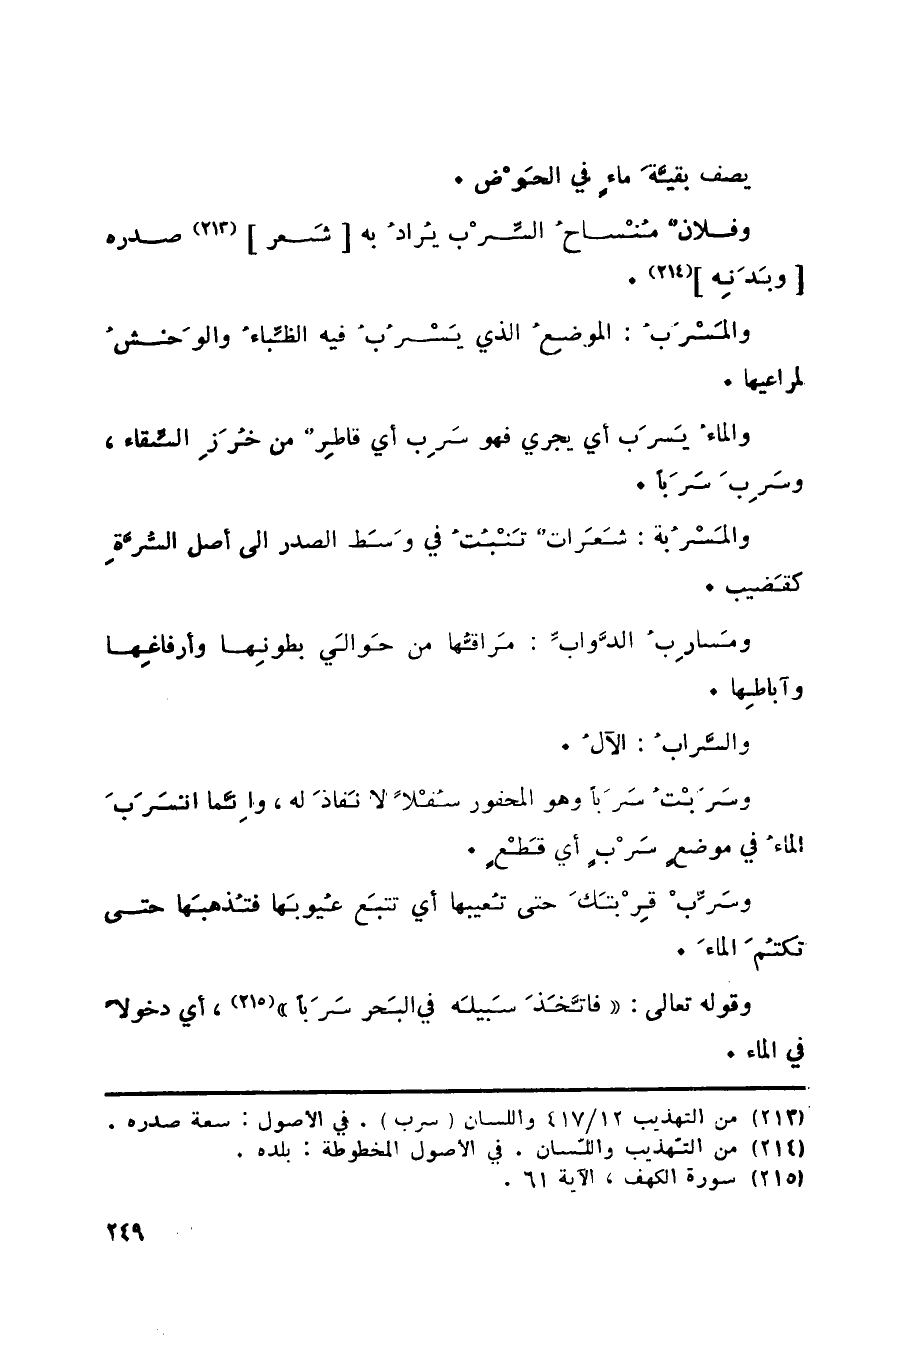 يصف بقيَّةَ ماءٍ في الحَوْض .
وفلانٌ مُنْساحُ السَّرْب يُرادُ به [ شَعر ] (٢١٣) صدره
[ وبَدَنِه ](٢١٤) .
والمَسْرَبُ : الموضعُ الذي يَسْرُبُ فيه الظِّباءُ والوَحْشُ
لمراعيها .
والماءُ يَسرَب أي يجري فهو سَرِب أي قاطِرٌ من خُرَزِ السِّقاء ،
وسَرِبَ سَرَباً .
والمَسْرُبة : شَعَرَاتٌ تَنْبُتُ في وَسَط الصدر الى أصل السُّرَّةِ
كقَضيب .
ومَسارِبُ الدَّوابِّ : مَراقُّها من حَوالَي بطونِها وأرفاغِها
وآباطِها .
والسَّرابُ : الآلُ .
وسَرَبْتُ سَرَباً وهو المحفور سُفْلاً لا نَفاذَ له ، وإنَّما انْسَرَبَ
الماءُ في موضعِ سَرْبٍ أي قَطْعٍ .
وسَرِّبْ قِرْبتَكَ حتى تُعيبها أي تتبَع عُيوبَها فتُذهبَها حتى
تكتُمَ الماءَ .
وقوله تعالى : « فاتَّخَذَ سَبيلَه في البَحر سَرَباً »(٢١٥) ، أي دخولاً
في الماء .
(٢١٣) من التهذيب ٤١٧/١٢ واللسان ( سرب ) . في الاصول : سعة صدره .
(٢١٤) من التّهذيب واللّسان . في الاصول المخطوطة : بلده .
(٢١٥) سورة الكهف ، الآية ٦١ .
٢٤٩